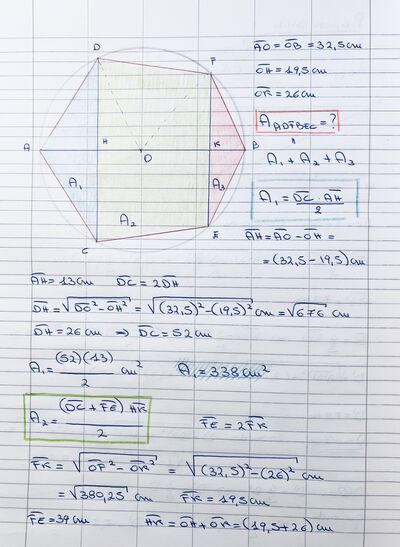 D
F
A
H
O
K
B
A₁
A₂
A₃
C
E
AO = OB = 32,5 cm
OH = 19,5 cm
OK = 26 cm
A ADFBEC = ?
A₁ + A₂ + A₃
A₁ = DC · AH / 2
AH = AO - OH =
= (32,5 - 19,5) cm
AH = 13 cm DC = 2DH
DH = √DO² - OH² = √(32,5)² - (19,5)² cm = √676 cm
DH = 26 cm ⇒ DC = 52 cm
A₁ = (52)(13) / 2 cm² A₁ = 338 cm²
A₂ = (DC + FE) HK / 2 FE = 2FK
FK = √OF² - OK² = √(32,5)² - (26)² cm
= √380,25 cm FK = 19,5 cm
FE = 39 cm HK = OH + OK = (19,5 + 26) cm